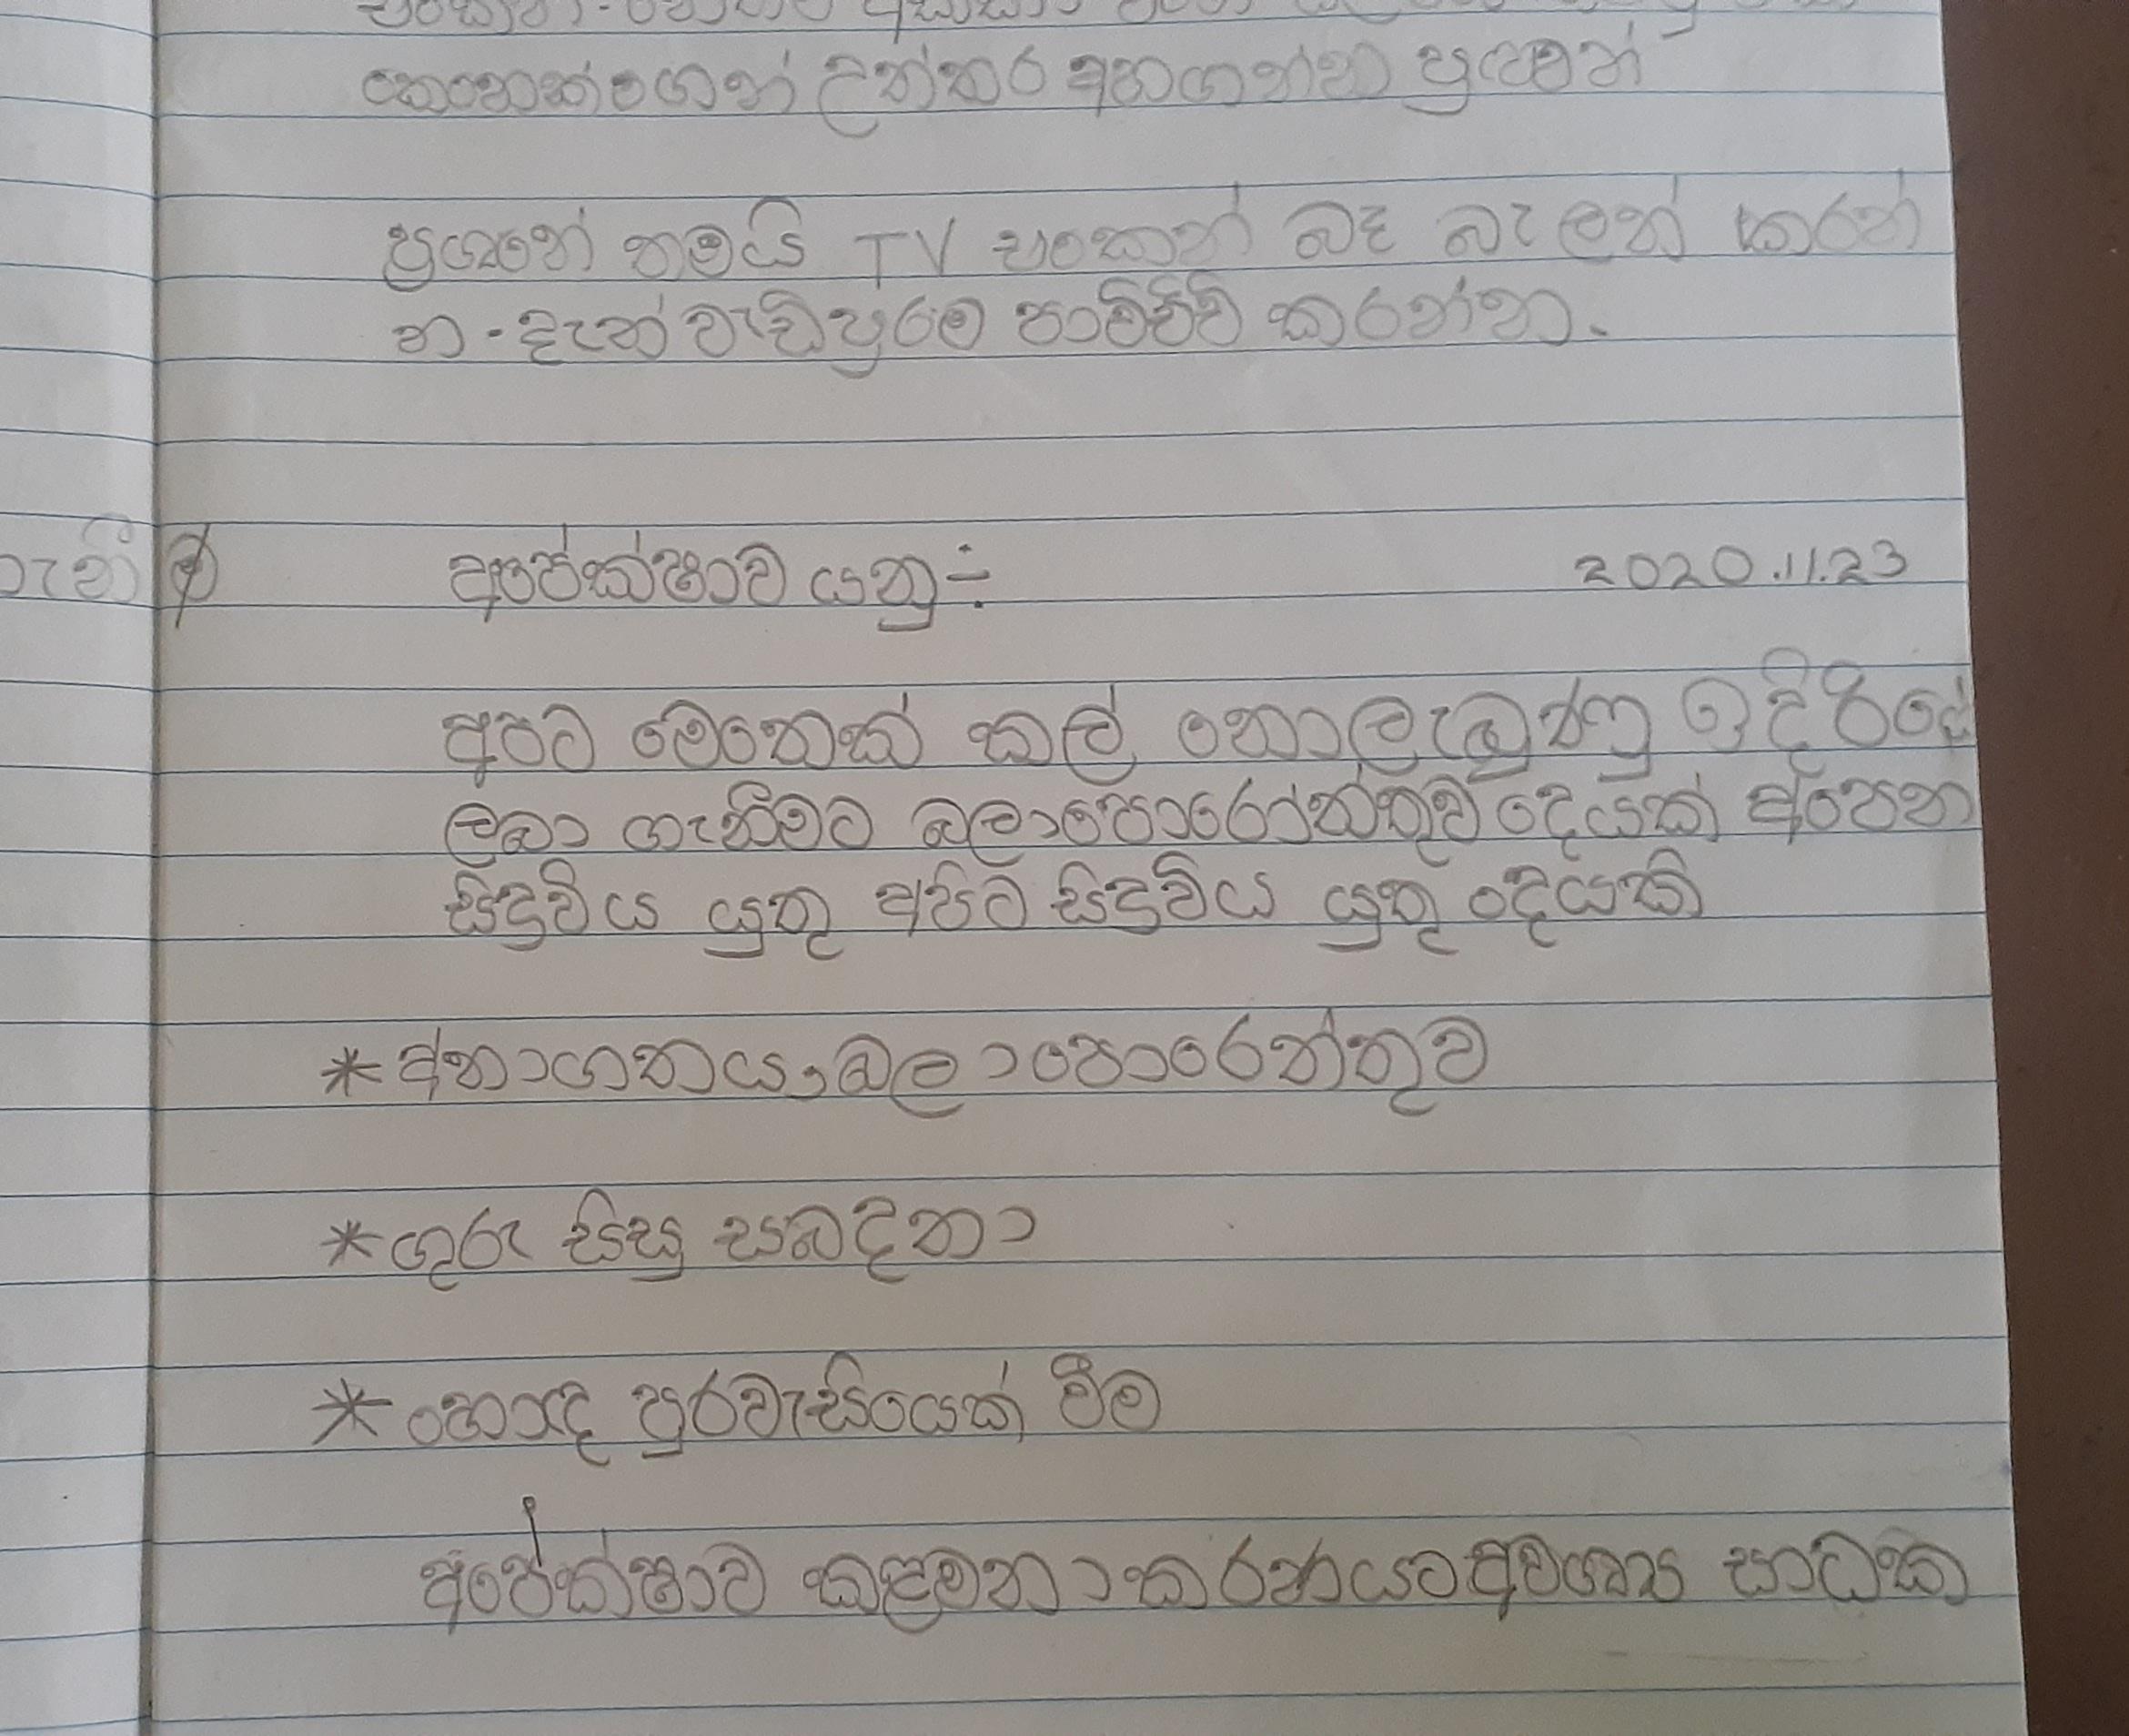 කෙනෙක්ගෙන් උත්තර අහගන්න පුලුවන්
ප්‍රශ්නේ තමයි TV එකෙන් බෑ බැලන් කරන්
න. දැන් වැඩිපුරම පාවිච්චි කරන්නා.
අපේක්ෂාව යනු ÷ 2020.11.23
අපට මෙතෙක් කල් නොලැබුණු ඉදිරියේ
ලබා ගැනීමට බලාපොරොත්තුව දෙයක් අපෙන
සිදුවිය යුතු අපිට සිදුවිය යුතු දෙයකි
* අනාගතය, බලාපොරෙත්තුව
* ගුරු සිසු සබදතා
* හොඳ පුරවැසියෙක් වීම
අපේක්ෂාව කළමනාකරණයට අවශ්‍ය සාධක